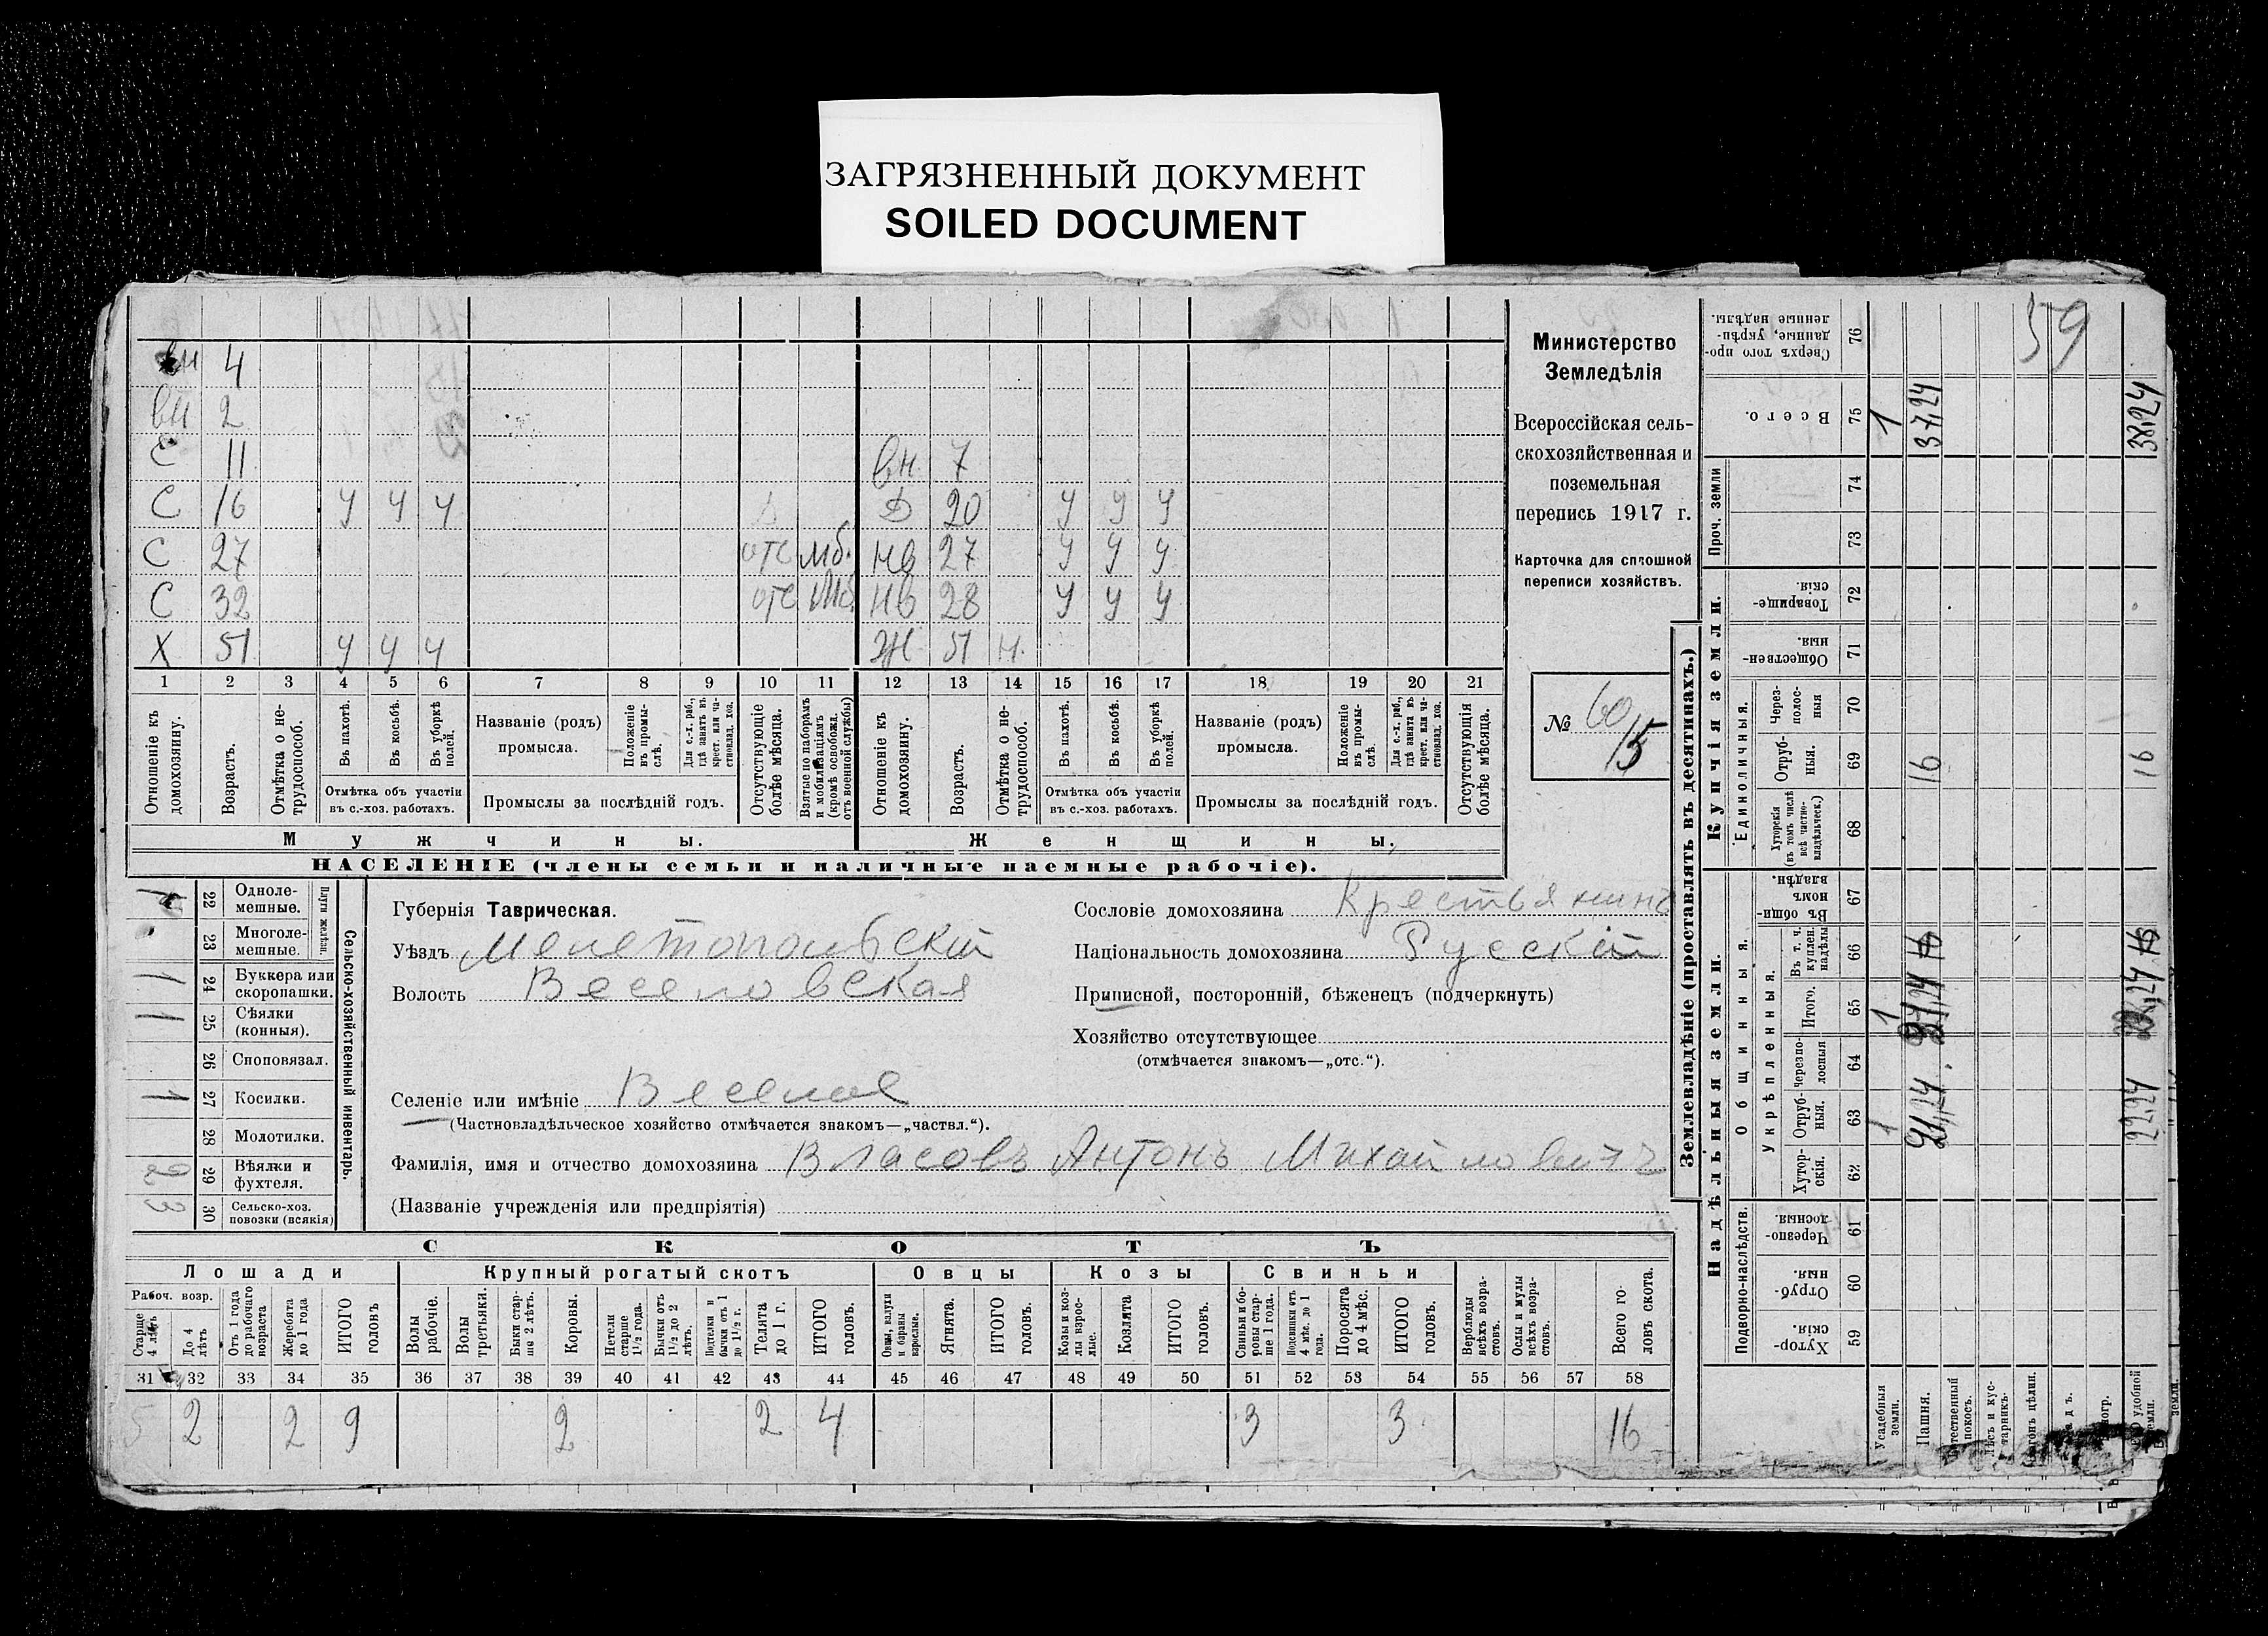 ЗАГРЯЗНЕННЫЙ ДОКУМЕНТ
SOILED DOCUMENT
вн 4
вн 2
С 11 вн 7
С 16 у у у Д 20 у у у
С 27 отс мб. нв 27 у у у
С 32 отс мб. нв 28 у у у
Х 51 у у у Ж 51 н.
1 2 3 4 5 6 7 8 9 10 11 12 13 14 15 16 17 18 19 20 21
Отношеніе къ домохозяину.
Возрастъ.
Отмѣтка о не-трудоспособ.
Въ пахотѣ.
Въ косьбѣ.
Въ уборкѣ полей.
Отмѣтка объ участіи въ с.-хоз. работахъ.
Названіе (родъ) промысла.
Положеніе въ промы-слѣ.
Для с.-х. раб., гдѣ занятъ въ крест. или ча-стновлад. хоз.
Промыслы за послѣдній годъ.
Отсутствующіе болѣе мѣсяца.
Взятые по наборамъ и мобилизаціямъ (кромѣ освобожд. отъ военной службы)
Отношеніе къ домохозяину.
Возрастъ.
Отмѣтка о не-трудоспособ.
Въ пахотѣ.
Въ косьбѣ.
Въ уборкѣ полей.
Отмѣтка объ участіи въ с.-хоз. работахъ.
Названіе (родъ) промысла.
Положеніе въ промы-слѣ.
Для с.-х. раб., гдѣ занята въ крест. или ча-стновлад. хоз.
Промыслы за послѣдній годъ.
Отсутствующія болѣе мѣсяца.
Мужчины. Женщины.
НАСЕЛЕНІЕ (члены семьи и наличные наемные рабочіе).
Министерство
Земледѣлія
Всероссійская сель-
скохозяйственная и
поземельная
перепись 1917 г.
Карточка для сплошной
переписи хозяйствъ.
№ 60
15
22 Одноле-мешные.
23 Многоле-мешные.
Плуги желѣзн.
1 24 Буккера или скоропашки.
1 25 Сѣялки (конныя).
26 Сноповязал.
1 27 Косилки.
28 Молотилки.
2 29 Вѣялки и фухтеля.
3 30 Сельско-хоз. повозки (всякія)
Сельско-хозяйственный инвентарь.
Губернія Таврическая.
Уѣздъ Мелетопольскій
Волость Веселовская
Селеніе или имѣніе Веселое
(Частновладѣльческое хозяйство отмѣчается знакомъ—„частвл.“).
Фамилія, имя и отчество домохозяина Власовъ Антонъ Михайловичъ
(Названіе учрежденія или предпріятія)
Сословіе домохозяина Крестьянинъ
Національность домохозяина Русскій
Приписной, посторонній, бѣженецъ (подчеркнуть)
Хозяйство отсутствующее
(отмѣчается знакомъ—„отс.“).
СКОТЪ
Лошади Крупный рогатый скотъ Овцы Козы Свиньи
Рабоч. возр.
Старше 4 лѣтъ
До 4 лѣтъ
Отъ 1 года до рабочаго возраста
Жеребята до 1 года
ИТОГО головъ
Волы рабочіе.
Волы третьяки.
Быки стар-ше 2 лѣтъ.
Коровы.
Нетели старше 1½ года.
Бычки отъ 1½ до 2 лѣтъ.
Подтелки и бычки отъ 1 до 1½ г.
Телята до 1 г.
ИТОГО головъ.
Овцы, валухи и бараны взрослые.
Ягнята.
ИТОГО головъ.
Козы и коз-лы взрос-лые.
Козлята
ИТОГО головъ.
Свиньи и бо-ровы стар-ше 1 года.
Подсвинки отъ 4 мѣс. до 1 года.
Поросята до 4 мѣс.
ИТОГО головъ.
Верблюды всѣхъ возра-стовъ.
Ослы и мулы всѣхъ возра-стовъ.
Всего го-ловъ скота.
31 32 33 34 35 36 37 38 39 40 41 42 43 44 45 46 47 48 49 50 51 52 53 54 55 56 57 58
5 2 2 9 2 2 4 3 3 16
Землевладѣніе (проставлять въ десятинахъ.)
Сверхъ того про-данные, укрѣп-ленные надѣлы. 76
59
Всего. 75 1 37,24 38,24
Проч. земли 74
73
Купчія земли.
Товарище-скія 72
Обществен-ныя. 71
Единоличныя.
Через-полос-ныя 70
Отруб-ныя. 69 16 16
Хуторскія (въ томъ числѣ всѣ частно-владѣльческ.) 68
Надѣльныя земли.
Общинныя.
Въ общи-нномъ владѣн. 67
Укрѣпленныя.
Въ т. ч. куплен. надѣлы 66
Итого. 65 1
Черезпо-лосныя 64
Отруб-ныя. 63 1 21,24 22,24
Хутор-скія. 62
Подворно-наслѣдств.
Черезпо-лосныя. 61
Отруб-ныя. 60
Хутор-скія. 59
Усадебныя земли.
Пашня.